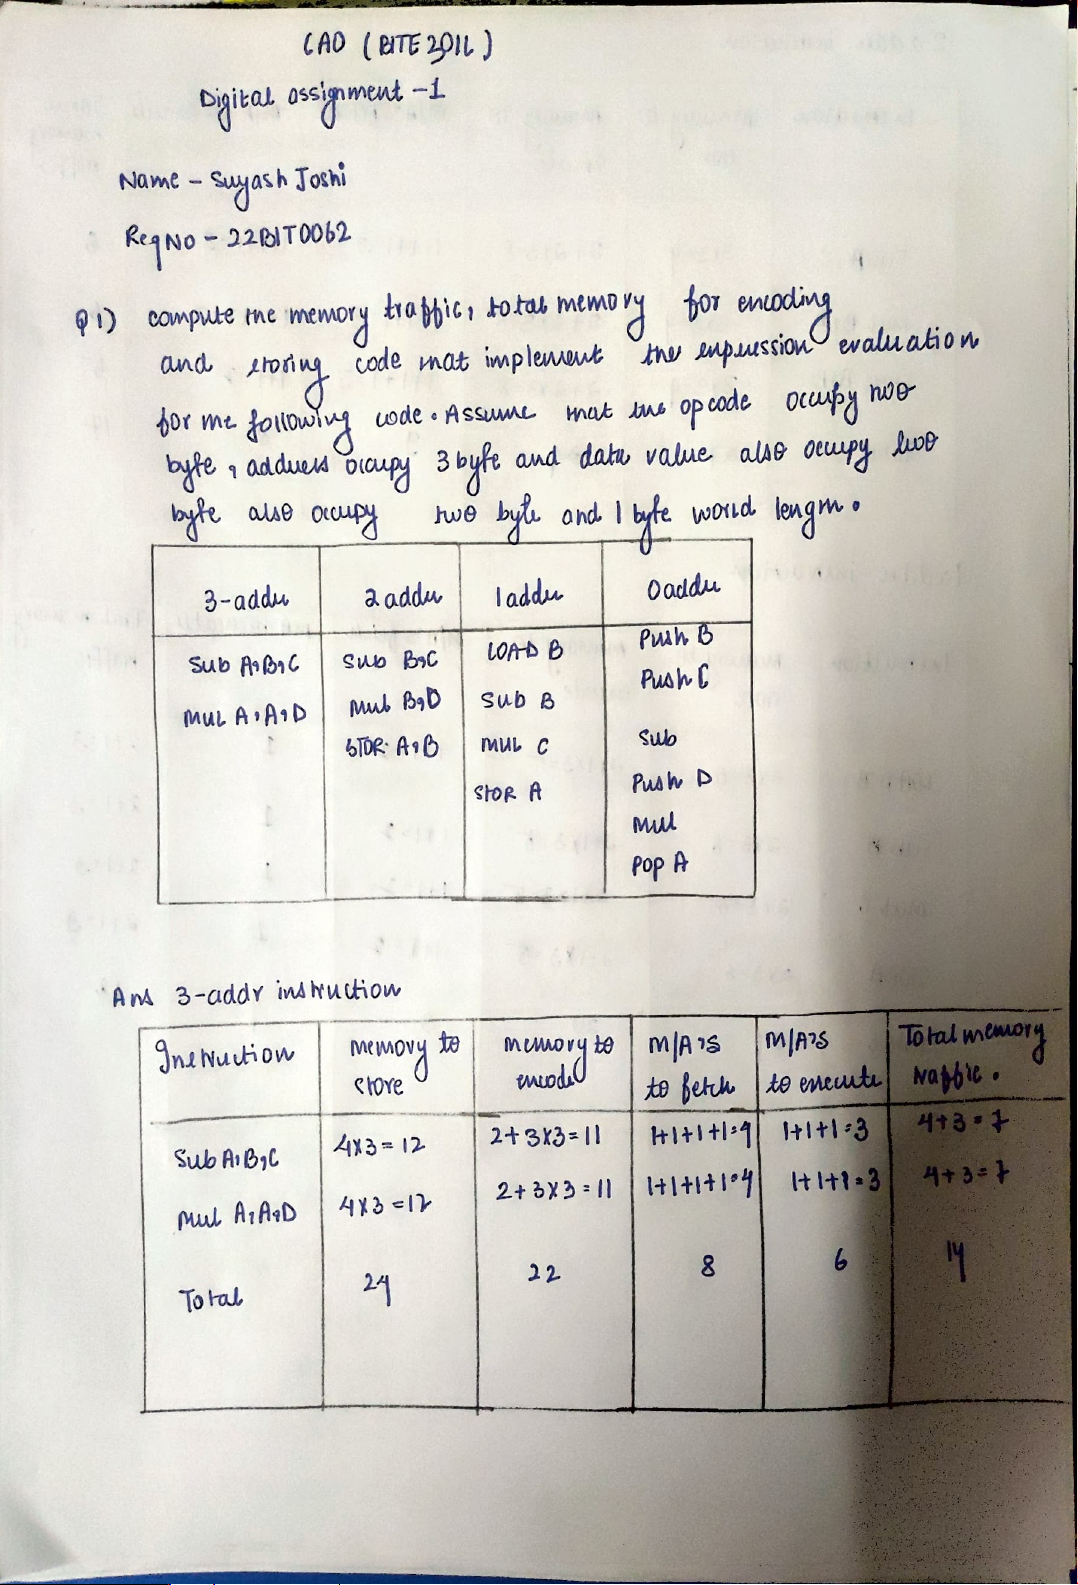 CAO (BITE 201L)
Digital assignment -1
Name - Suyash Joshi
Reg No - 22BIT0062
Q1) compute the memory traffic, total memory for encoding
and storing code that implement the expression evaluation
for the following code. Assume that the opcode occupy two
byte, address occupy 3 byte and data value also occupy two
byte also occupy two byte and 1 byte world length.
3-addr 2 addr 1 addr 0 addr
Sub A,B,C Sub B,C LOAD B Push B
MUL A,A,D Mul B,D SUB B Push C
STOR A,B MUL C Sub
STOR A Push D
Mul
POP A
Ans 3-addr instruction
Instruction Memory to store memory to encode M/A's to fetch M/A's to execute Total memory traffic.
Sub A,B,C 4x3=12 2+3x3=11 1+1+1+1=4 1+1+1=3 4+3=7
Mul A,A,D 4x3=12 2+3x3=11 1+1+1+1=4 1+1+1=3 4+3=7
Total 24 22 8 6 14